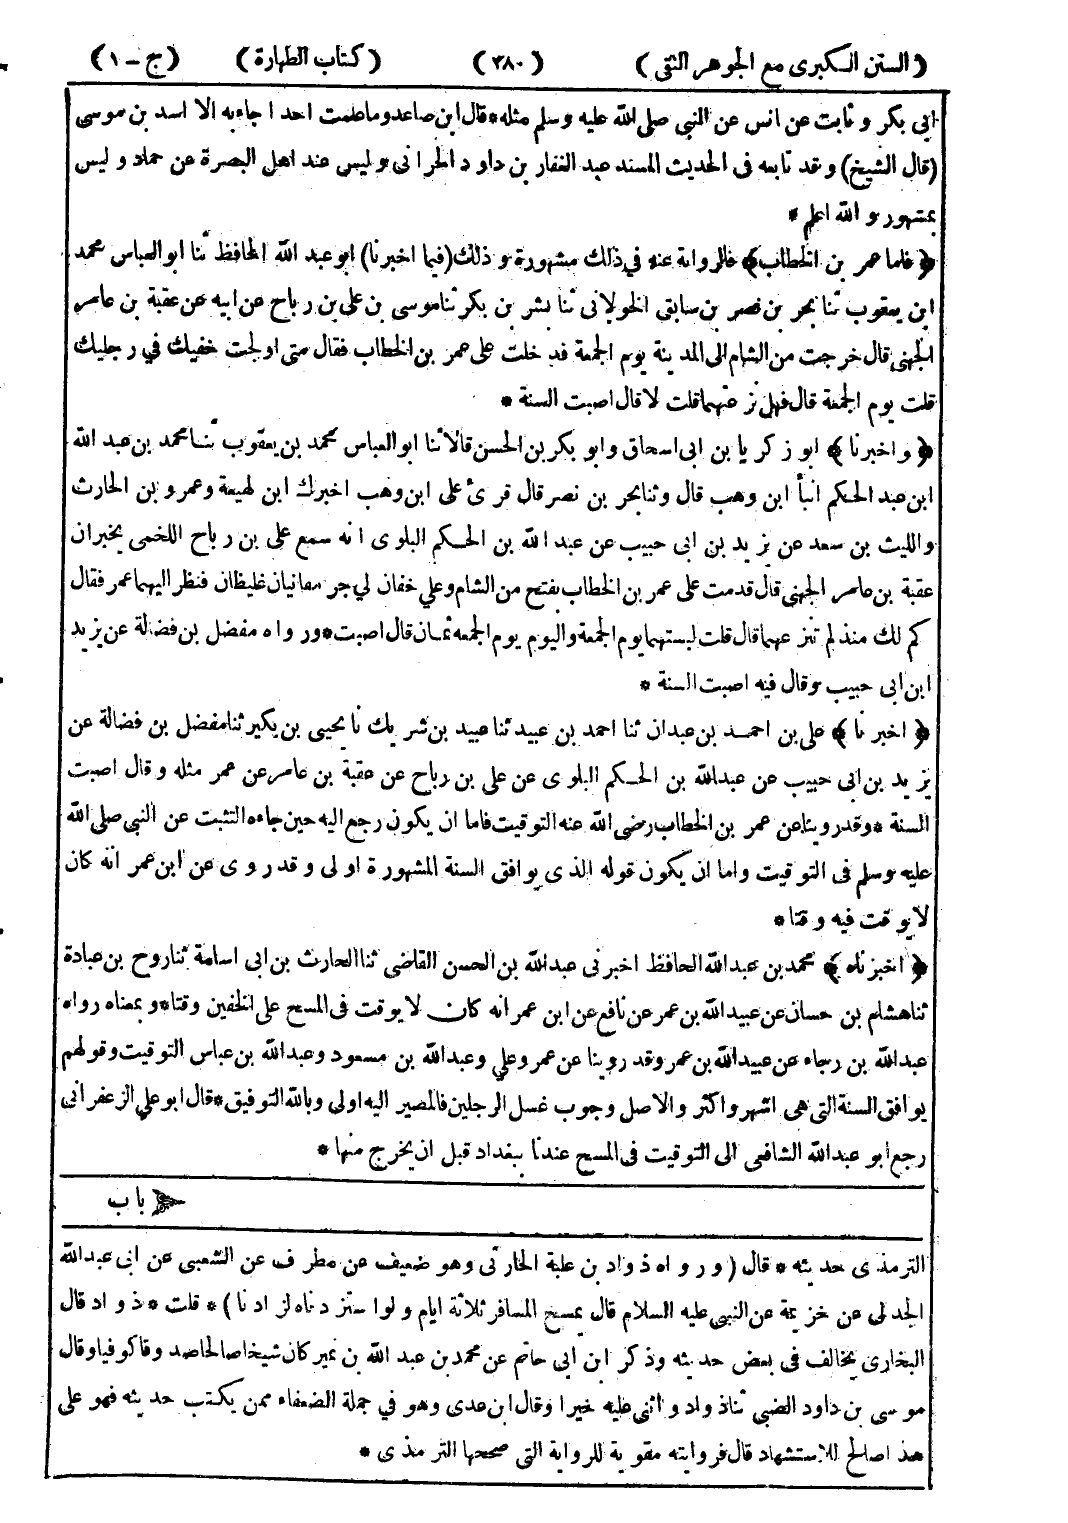 (السنن الكبرى مع الجوهر النقى) (٣٨٠) (كتاب الطهارة) (ج - ١)
ابى بكر و ثابت عن انس عن النبى صلى الله عليه وسلم مثله * قال ابن صاعد وما علمت احدا جاء به الا اسد بن موسى
(قال الشيخ) وقد تابعه فى الحديث المسند عبد الغفار بن داود الحرانى وليس عند اهل البصرة عن حماد وليس
بمشهور والله اعلم *
﴿ فاما عمر بن الخطاب ﴾ فالرواية عنه في ذلك مشهورة وذلك (فيما اخبرنا) ابو عبد الله الحافظ ثنا ابو العباس محمد
ابن يعقوب ثنا بحر بن نصر بن سابق الخولانى ثنا بشر بن بكر ثنا موسى بن على بن رباح عن ابيه عن عقبة بن عامر
الجهنى قال خرجت من الشام الى المدينة يوم الجمعة فدخلت على عمر بن الخطاب فقال متى اولجت خفيك في رجليك
قلت يوم الجمعة قال فهل نزعتهما قلت لا قال اصبت السنة *
﴿ واخبرنا ﴾ ابو زكريا بن ابى اسحاق وابو بكر بن الحسن قالا ثنا ابو العباس محمد بن يعقوب ثنا محمد بن عبد الله
ابن عبد الحكم انبأ ابن وهب قال وثنا بحر بن نصر قال قرئ على ابن وهب اخبرك ابن لهيعة وعمرو بن الحارث
والليث بن سعد عن يزيد بن ابى حبيب عن عبد الله بن الحكم البلوى انه سمع على بن رباح اللخمى يخبر ان
عقبة بن عامر الجهنى قال قدمت على عمر بن الخطاب بفتح من الشام وعلي خفان لي جرمقانيان غليظان فنظر اليهما عمر فقال
كم لك منذ لم تنزعهما قال قلت لبستهما يوم الجمعة واليوم يوم الجمعه ثمان قال اصبت * ورواه مفضل بن فضالة عن يزيد
ابن ابى حبيب وقال فيه اصبت السنة *
﴿ اخبرنا ﴾ على بن احمد بن عبدان ثنا احمد بن عبيد ثنا عبيد بن شريك نا يحيى بن بكير ثنا مفضل بن فضالة عن
يزيد بن ابى حبيب عن عبدالله بن الحكم البلوى عن على بن رباح عن عقبة بن عامر عن عمر مثله وقال اصبت
السنة * وقد روينا عن عمر بن الخطاب رضى الله عنه التوقيت فاما ان يكون رجع اليه حين جاءه التثبت عن النبى صلى الله
عليه وسلم فى التوقيت واما ان يكون قوله الذى يوافق السنة المشهورة اولى وقد روى عن ابن عمر انه كان
لا يوقت فيه وقتا *
﴿ اخبرناه ﴾ محمد بن عبدالله الحافظ اخبرنى عبدالله بن الحسن القاضى ثنا الحارث بن ابى اسامة ثنا روح بن عبادة
ثنا هشام بن حسان عن عبيدالله بن عمر عن نافع عن ابن عمر انه كان لا يوقت فى المسح على الخفين وقتا * وبمعناه رواه
عبدالله بن رجاء عن عبيدالله بن عمر وقد روينا عن عمر وعلي وعبدالله بن مسعود وعبدالله بن عباس التوقيت وقولهم
يوافق السنة التى هى اشهر واكثر والاصل وجوب غسل الرجلين فالمصير اليه اولى وبالله التوفيق * قال ابو علي الزعفرانى
رجع ابو عبدالله الشافعى الى التوقيت فى المسح عندنا ببغداد قبل ان يخرج منها *
باب
الترمذى حديثه * قال (ورواه ذواد بن علبة الحارثى وهو ضعيف عن مطرف عن الشعبى عن ابى عبدالله
الجدلى عن خزيمة عن النبى عليه السلام قال يمسح المسافر ثلاثة ايام ولو استزدناه لزادنا) * قلت * ذواد قال
البخارى يخالف فى بعض حديثه وذكر ابن ابى حاتم عن محمد بن عبد الله بن نمير كان شيخا صالحا صدوقا كوفيا وقال
موسى بن داود الضبى ثنا ذواد واثنى عليه خيرا وقال ابن عدى وهو في جملة الضعفاء ممن يكتب حديثه فهو على
هذا صالح للاستشهاد قال فروايته مقوية للرواية التى صححها الترمذى *